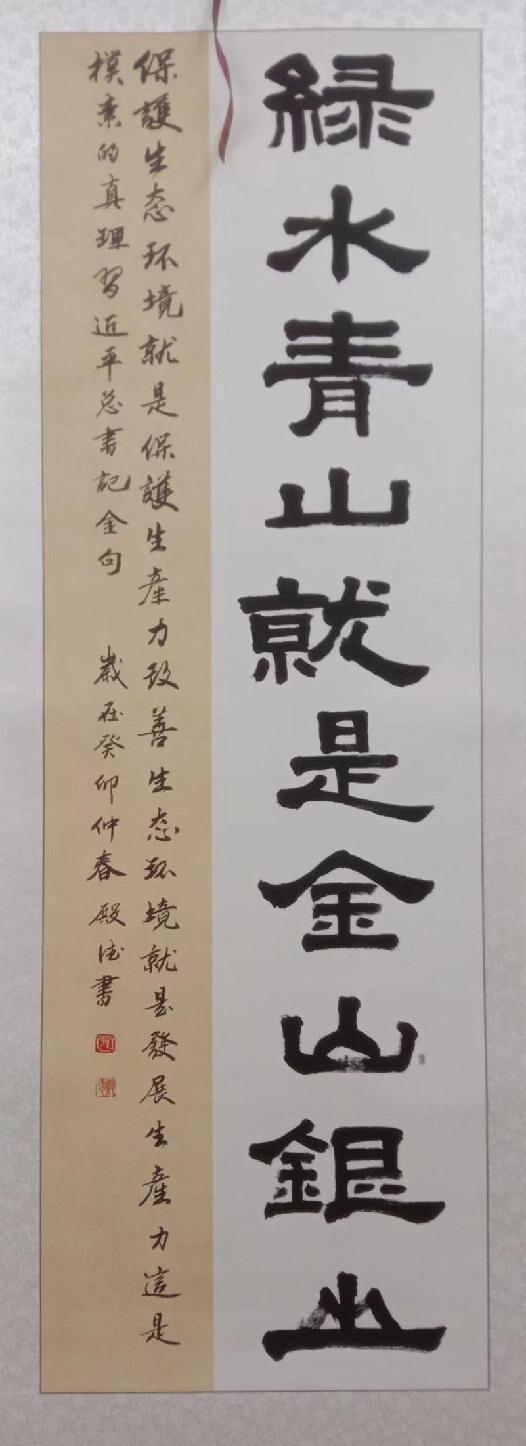 緑水青山就是金山銀山
保護生态环境就是保護生産力改善生态环境就是發展生産力這是
樸素的真理習近平总書記金句 歲在癸卯仲春 殿佐書